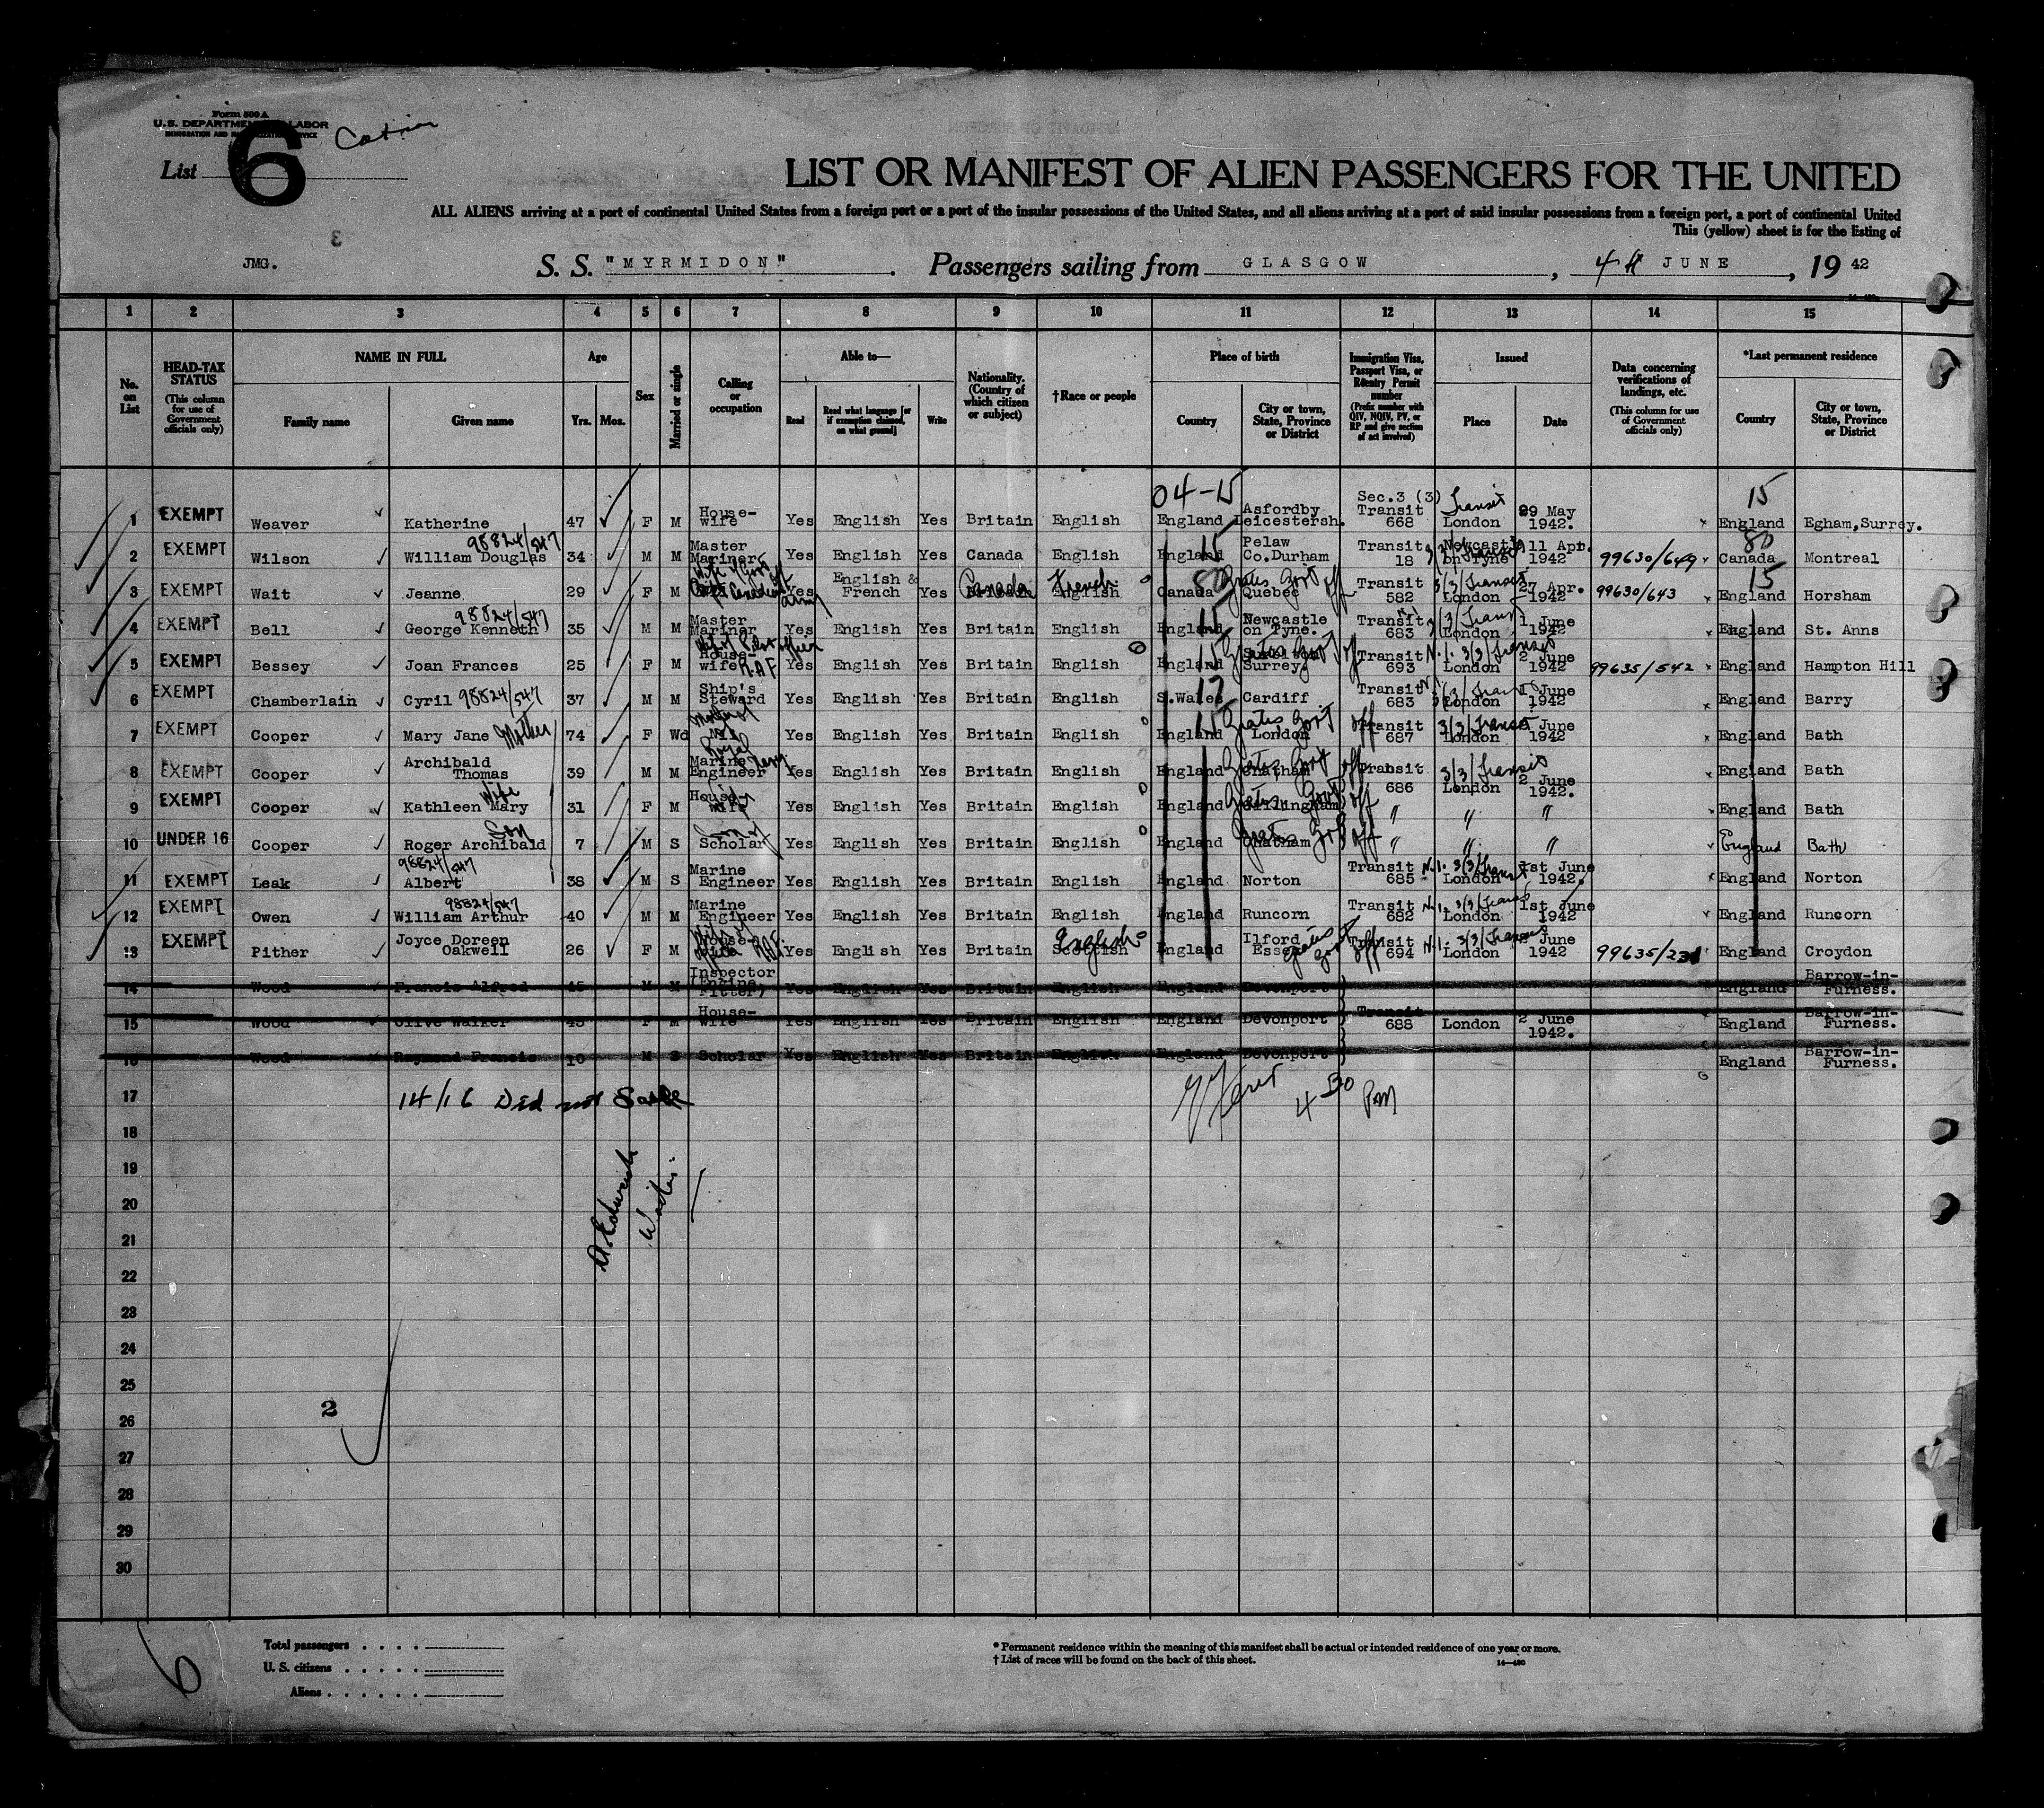 Form 500 A
U.S. DEPARTMENT OF LABOR
IMMIGRATION AND NATURALIZATION SERVICE
List 6 Cabin
LIST OR MANIFEST OF ALIEN PASSENGERS FOR THE UNITED
ALL ALIENS arriving at a port of continental United States from a foreign port or a port of the insular possessions of the United States, and all aliens arriving at a port of said insular possessions from a foreign port, a port of continental United
This (yellow) sheet is for the listing of
JMG. S. S. "MYRMIDON" . Passengers sailing from GLASGOW , 4th JUNE , 19 42
1 2 3 4 5 6 7 8 9 10 11 12 13 14 15
No. on List
HEAD-TAX STATUS (This column for use of Government officials only)
NAME IN FULL Family name Given name
Age Yrs. Mos.
Sex
Married or single
Calling or occupation
Able to— Read Read what language [or if exemption claimed, on what ground] Write
Nationality. (Country of which citizen or subject)
†Race or people
Place of birth Country City or town, State, Province or District
Immigration Visa, Passport Visa, or Reentry Permit number (Prefix number with QIV, NQIV, PV, or RP and give section of act involved)
Issued Place Date
Data concerning verifications of landings, etc. (This column for use of Government officials only)
*Last permanent residence Country City or town, State, Province or District
04-15 15
1 EXEMPT Weaver Katherine 47 F M House-wife Yes English Yes Britain English England Asfordby Leicestersh. Sec.3 (3) Transit 668 Transit London 29 May 1942. England Egham, Surrey.
2 EXEMPT Wilson William Douglas 98824/547 34 M M Master Mariner Yes English Yes Canada English England 15 Pelaw Co.Durham Transit 18 Newcastle on Tyne 11 Apr. 1942 99630/649 80 Canada Montreal
3 EXEMPT Wait Jeanne 29 F M Yes English & French Yes Canada French English Canada 80 Quebec Gratis Gov't off Transit 582 3/3/Transit London 27 Apr. 1942 99630/643 15 England Horsham
4 EXEMPT Bell George Kenneth 98824/547 35 M M Master Mariner Yes English Yes Britain English England 15 Newcastle on Tyne. Transit 683 London 1 June 1942 England St. Anns
5 EXEMPT Bessey Joan Frances 25 F M House-wife R.A.F Yes English Yes Britain English England 15 Surrey Transit 693 3/3/Transit London 2 June 1942 99635/542 England Hampton Hill
6 EXEMPT Chamberlain Cyril 98824/547 37 M M Ship's Steward Yes English Yes Britain English S.Wales 17 Cardiff Transit 683 London 1 June 1942 England Barry
7 EXEMPT Cooper Mary Jane Mother 74 F Wd Mother of Yes English Yes Britain English England 15 London Gratis Gov't off Transit 687 3/3/Transit London June 1942 England Bath
8 EXEMPT Cooper Archibald Thomas 39 M M Royal Navy Marine Engineer Yes English Yes Britain English England Chatham Gratis Gov't off Transit 686 3/3/Transit London 2 June 1942. England Bath
9 EXEMPT Cooper Kathleen Mary Wife 31 F M House-wife Yes English Yes Britain English England Gillingham Gratis Gov't off " " " England Bath
10 UNDER 16 Cooper Roger Archibald Son 7 M S Son of Scholar Yes English Yes Britain English England Chatham Gratis Gov't off " " " England Bath
11 EXEMPT Leak Albert 98824/547 38 M S Marine Engineer Yes English Yes Britain English England Norton Transit 685 N.1. 3/3/Transit London 1st June 1942. England Norton
12 EXEMPT Owen William Arthur 98824/547 40 M M Marine Engineer Yes English Yes Britain English England Runcorn Transit 682 N.1. 3/3/Transit London 1st June 1942 England Runcorn
13 EXEMPT Pither Joyce Doreen Oakwell 26 F M House-wife Yes English Yes Britain English Scottish England Ilford Essex Gratis Gov't off Transit 694 N.1. 3/3/Transit London June 1942 99635/231 England Croydon
14 Wood Francis Alfred 45 M M Inspector (Engine Fitter) Yes English Yes Britain English England Devonport England Barrow-in-Furness.
15 Wood Olive Walker 43 F M House-wife Yes English Yes Britain English England Devonport Transit 688 London 2 June 1942. England Barrow-in-Furness.
16 Wood Raymond Francis 10 M S Scholar Yes English Yes Britain English England Devonport England Barrow-in-Furness.
17 14/16 Did not Sail 4 30 PM
18
19
20
21
22
23
24
25
26 2
27
28
29
30
6
Total passengers . . . .
U. S. citizens . . . . .
Aliens . . . . . .
* Permanent residence within the meaning of this manifest shall be actual or intended residence of one year or more.
† List of races will be found on the back of this sheet.
14—430